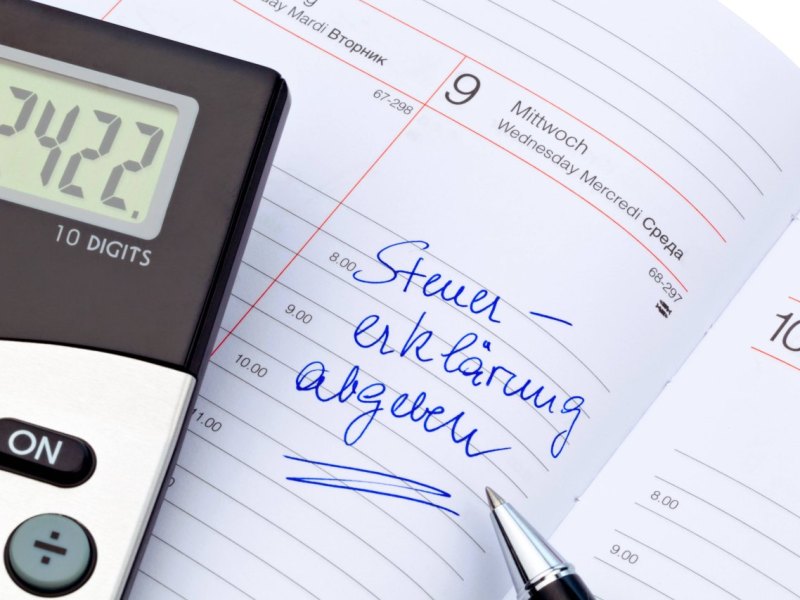 2422.
10 DIGITS
ON
÷
Mardi Вторник
67-298
9
Mittwoch
Wednesday Mercredi Среда
68-297
8.00
9.00
10.00
11.00
Steuer-
erklärung
abgeben
10
8.00
9.00